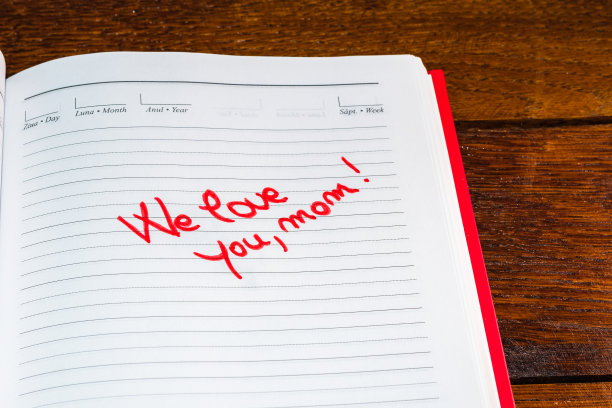 Ziua • Day Luna • Month Anul • Year Săpt. • Week
We love
you, mom!